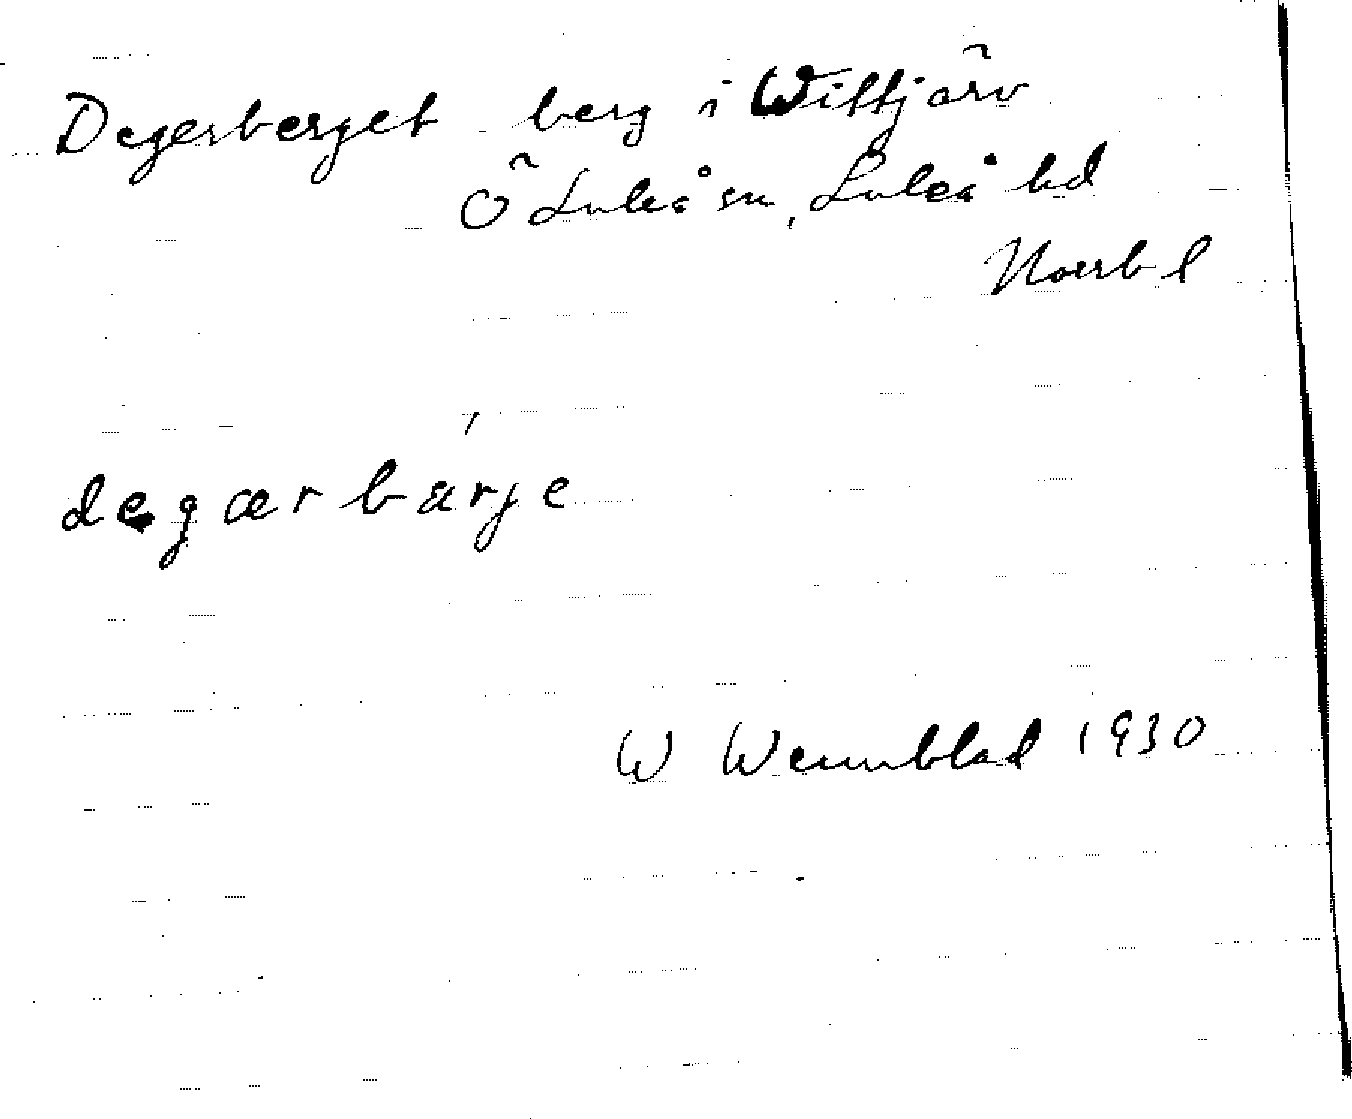 Degerberget berg i Wittjärv
Ö Luleå sn, Luleå hd
Norrb l
degærbärje
W Wennblad 1930